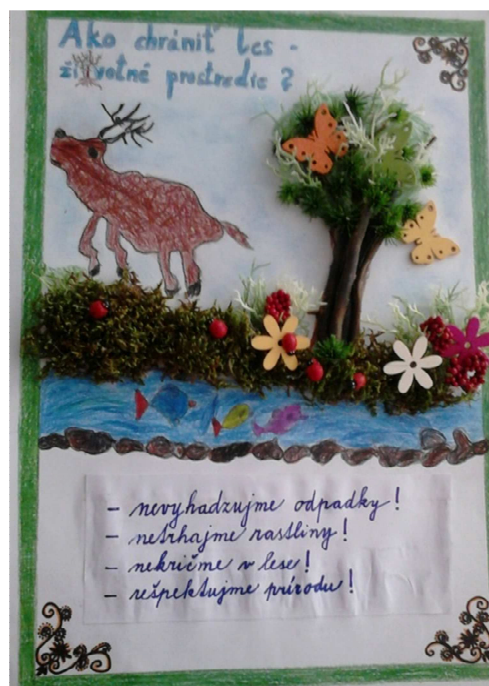 Ako chrániť les -
životné prostredie?
- nevyhadzujme odpadky!
- netrhajme rastliny!
- nekričme v lese!
- rešpektujme prírodu!